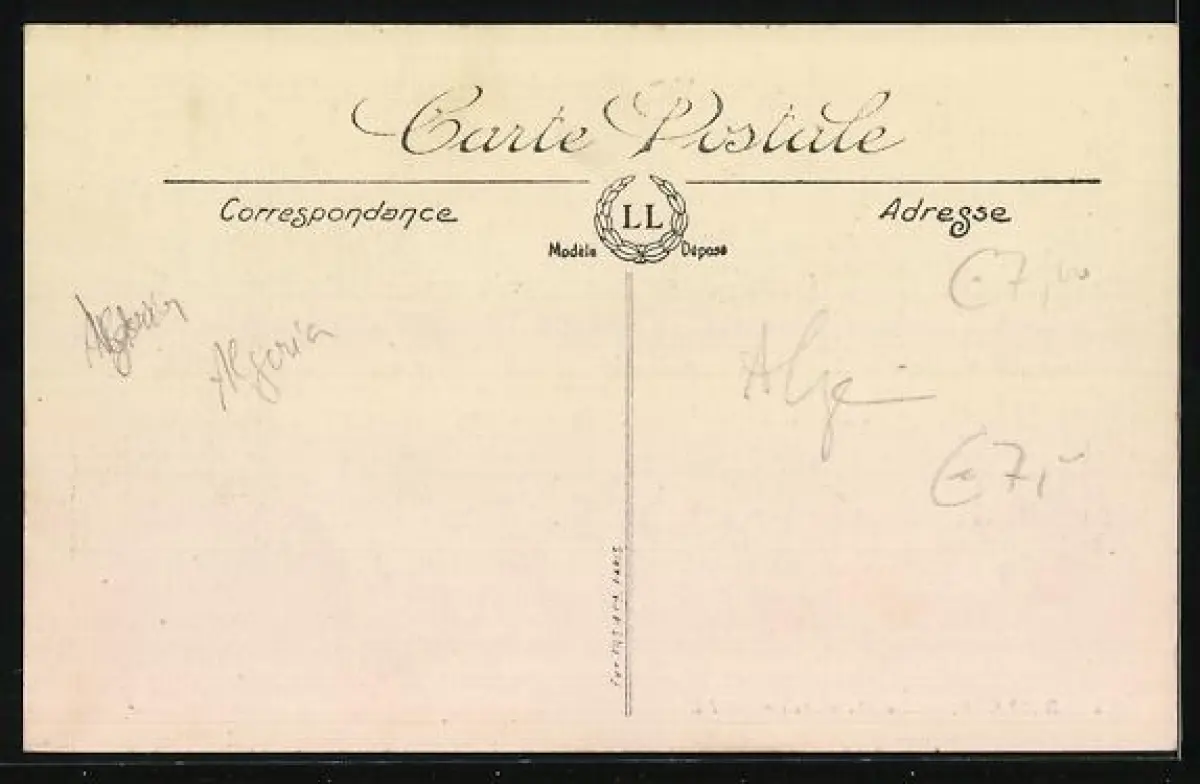 Carte Postale
Correspondance
LL
Adresse
Modèle Déposé
€7,00
Algeria
Algeria
Alge
€7,-